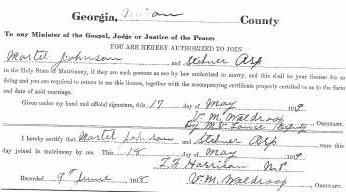 Georgia, Union County
To any Minister of the Gospel, Judge or Justice of the Peace
YOU ARE HEREBY AUTHORIZED TO JOIN
Martel Johnson and Arp
in the Holy State of Matrimony, if they are such persons as are by law authorized to marry, and this shall be your license for so
doing and you are required to return to me this license, together with the accompanying certificate properly certified to as to the fact
and date of said marriage.
Given under my hand and official signature, this 17 day of May 191
V. M. Waldroop ORDINARY.
By M. V.
I hereby certify that Martel Johnson and Arp were this
day joined in matrimony by me. This 18 day of May 191
Harrison N. P.
Recorded 9th June 1918 V. M. Waldroop ORDINARY.